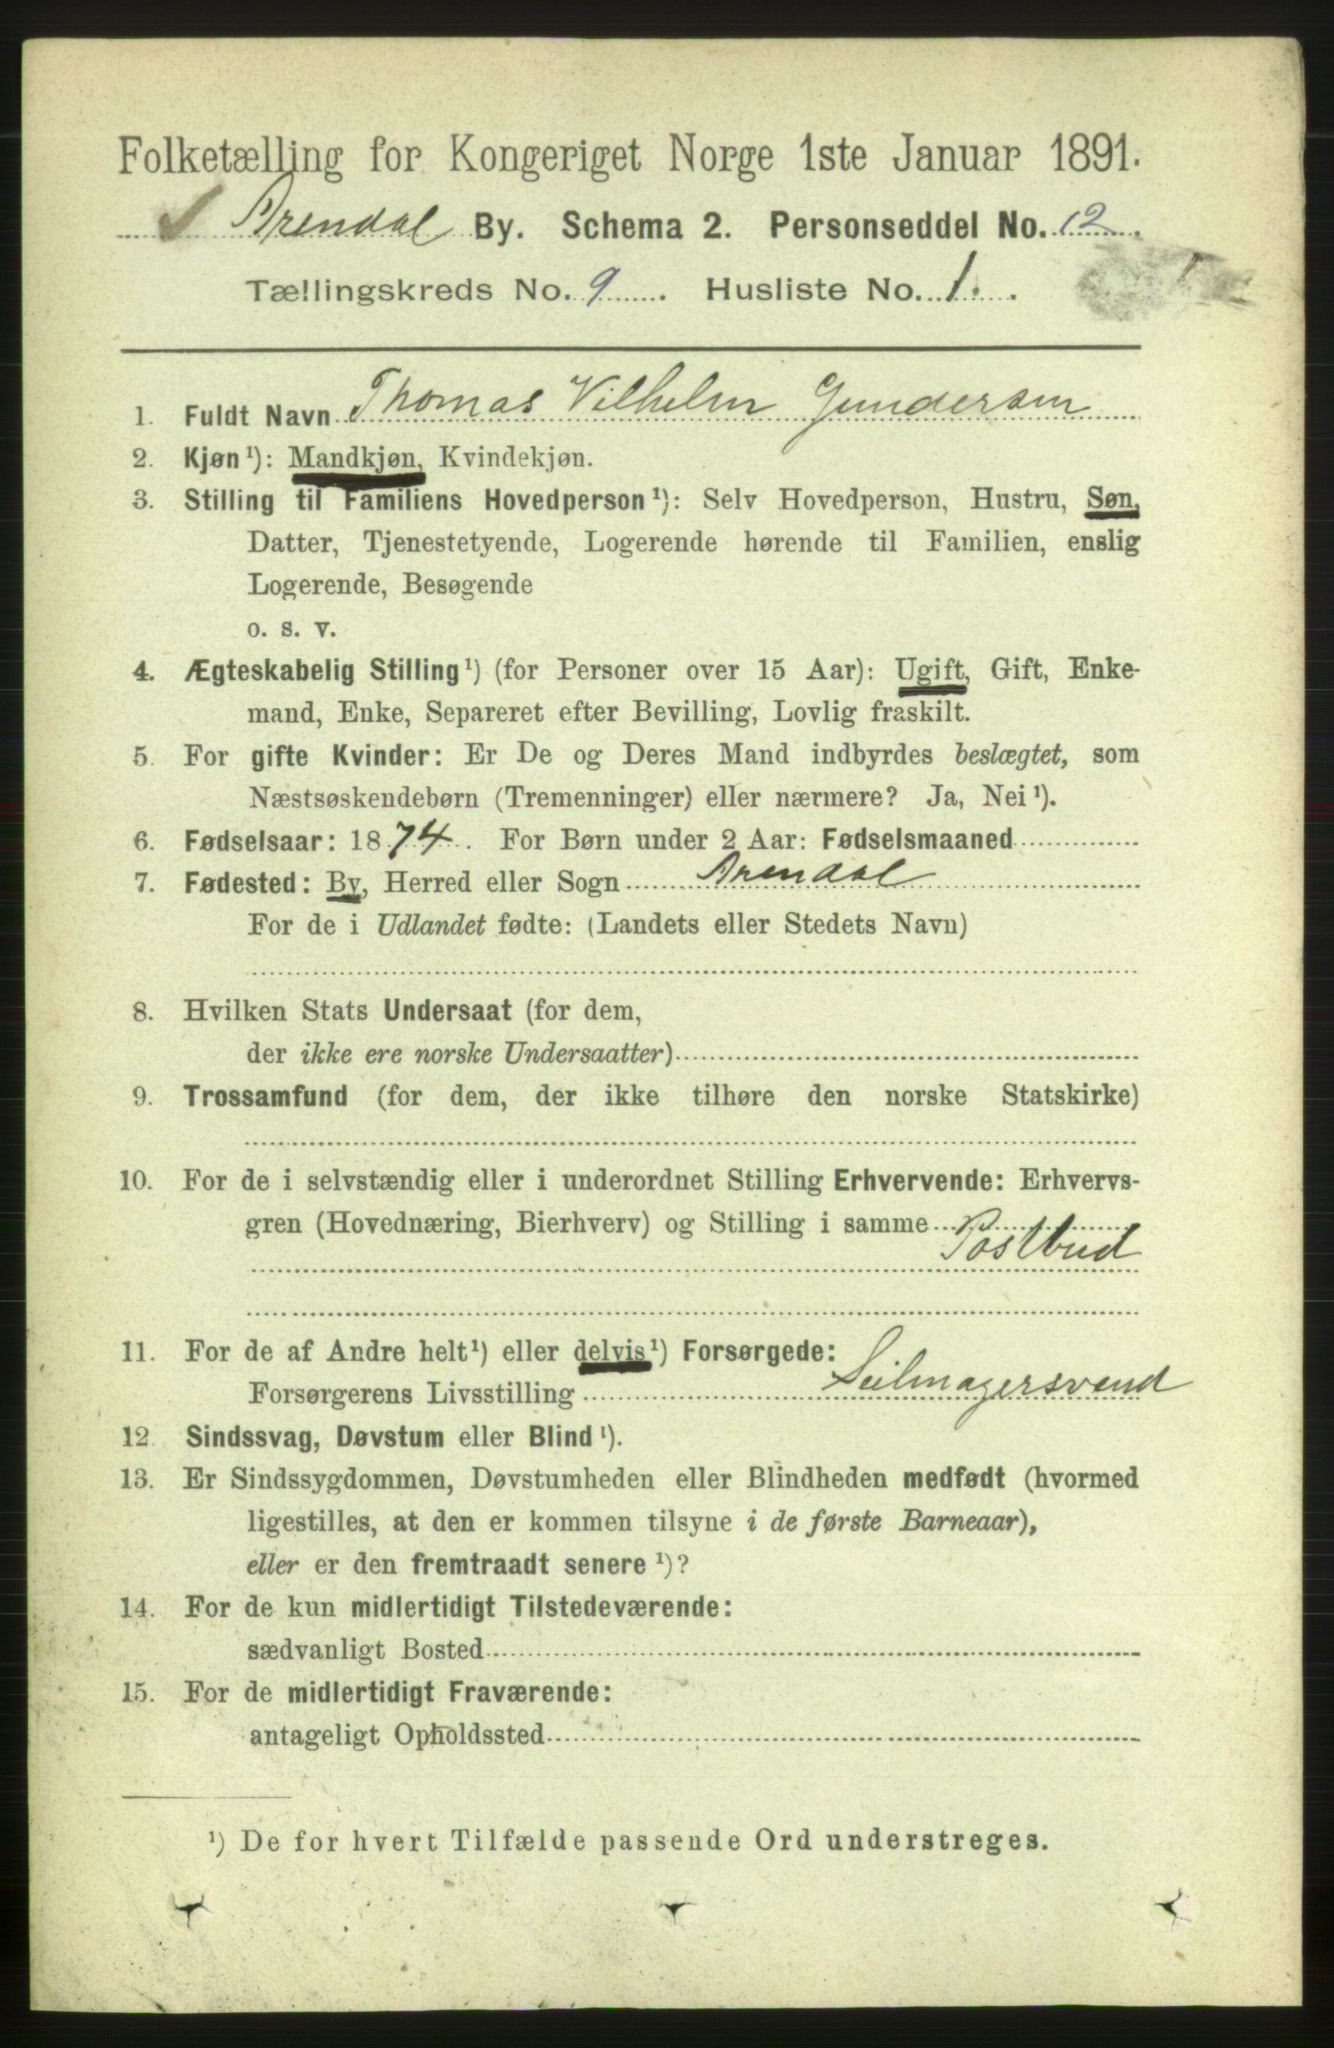 Folketælling for Kongeriget Norge 1ste Januar 1891.
Arendal By. Schema 2. Personseddel No. 12.
Tællingskreds No. 9. Husliste No. 1.
1. Fuldt Navn Thomas Vilhelm Gundersen
2. Kjøn¹): Mandkjøn, Kvindekjøn.
3. Stilling til Familiens Hovedperson¹): Selv Hovedperson, Hustru, Søn,
Datter, Tjenestetyende, Logerende hørende til Familien, enslig
Logerende, Besøgende
o. s. v.
4. Ægteskabelig Stilling¹) (for Personer over 15 Aar): Ugift, Gift, Enke-
mand, Enke, Separeret efter Bevilling, Lovlig fraskilt.
5. For gifte Kvinder: Er De og Deres Mand indbyrdes beslægtet, som
Næstsøskendebørn (Tremenninger) eller nærmere? Ja, Nei¹).
6. Fødselsaar: 1874. For Børn under 2 Aar: Fødselsmaaned
7. Fødested: By, Herred eller Sogn Arendal
For de i Udlandet fødte: (Landets eller Stedets Navn)
8. Hvilken Stats Undersaat (for dem,
der ikke ere norske Undersaatter)
9. Trossamfund (for dem, der ikke tilhøre den norske Statskirke)
10. For de i selvstændig eller i underordnet Stilling Erhvervende: Erhvervs-
gren (Hovednæring, Bierhverv) og Stilling i samme
Postbud
11. For de af Andre helt¹) eller delvis¹) Forsørgede:
Forsørgerens Livsstilling Seilmagersvend
12. Sindssvag, Døvstum eller Blind¹).
13. Er Sindssygdommen, Døvstumheden eller Blindheden medfødt (hvormed
ligestilles, at den er kommen tilsyne i de første Barneaar),
eller er den fremtraadt senere¹)?
14. For de kun midlertidigt Tilstedeværende:
sædvanligt Bosted
15. For de midlertidigt Fraværende:
antageligt Opholdssted
¹) De for hvert Tilfælde passende Ord understreges.